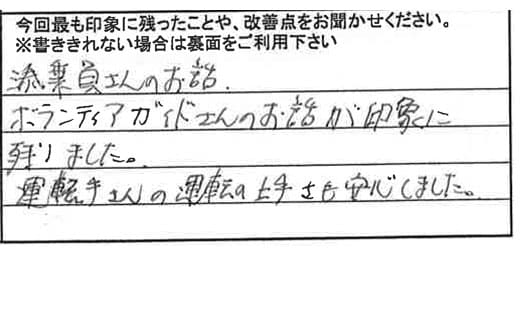 今回最も印象に残ったことや、改善点をお聞かせください。
※書ききれない場合は裏面をご利用下さい
添乗員さんのお話.
ボランティアガイドさんのお話が印象に
残りました。
運転手さんの運転の上手さも安心しました。